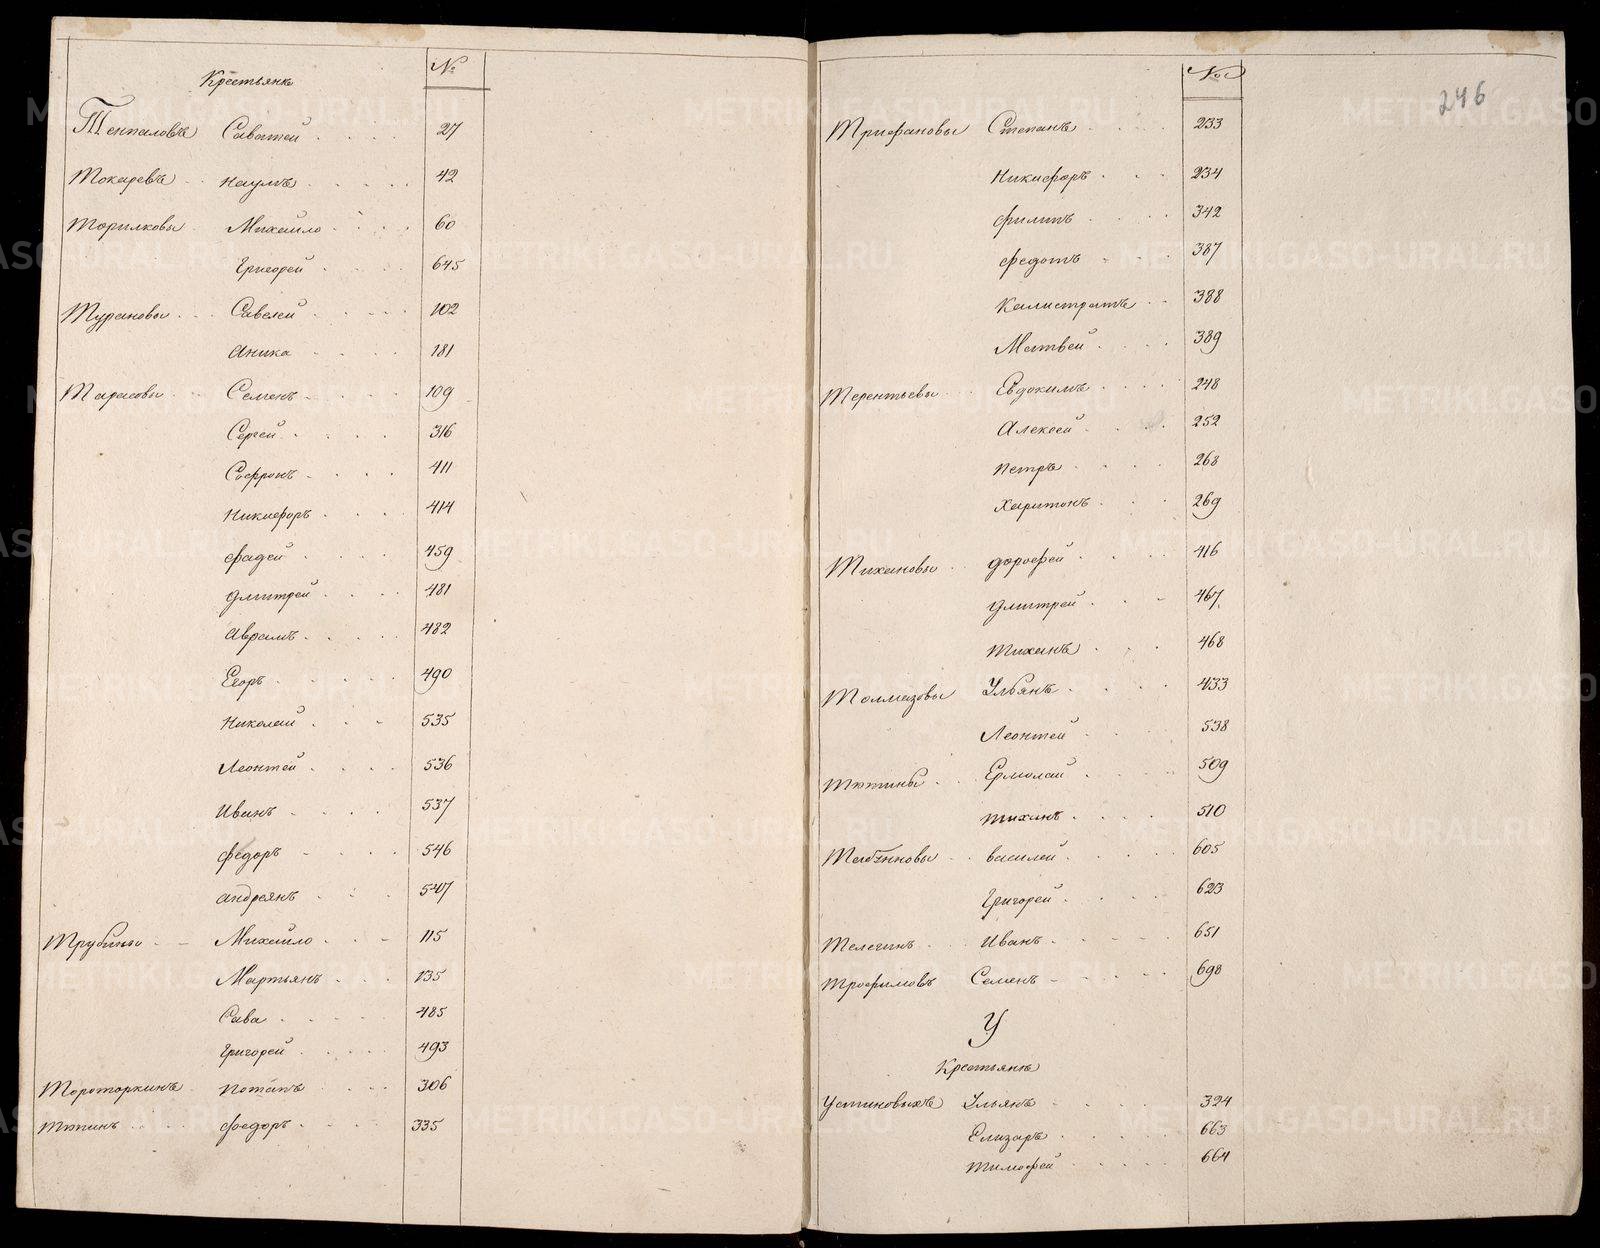 Крестьянъ №
Тенпаловъ Саватей 27
Токаревъ Наумъ 42
Торилковы Михайло 60
Григорей 645
Турановы Савелей 102
Аника 181
Тарасовы Семенъ 109
Сергей 316
Софронъ 411
Никифоръ 414
Фадей 459
Дмитрей 481
Аврамъ 482
Егоръ 490
Николай 535
Леонтей 536
Иванъ 537
Федоръ 546
Андреянъ 547
Трубины Михайло 115
Мартьянъ 135
Сава 485
Григорей 493
Тороторкинъ Потапъ 306
Тютинъ Фоедоръ 335
№
246
Трифановы Степанъ 233
Никифоръ 234
Филипъ 342
Федотъ 387
Калистратъ 388
Матвей 389
Терентьевы Евдокимъ 248
Алексей 252
Петръ 268
Харитонъ 269
Тихановы Дорофей 416
Дмитрей 467
Тиханъ 468
Толмазовы Ульянъ 433
Леонтей 538
Тютины Ермолай 509
Тиханъ 510
Василей 605
Григорей 623
Телегинъ Иванъ 651
Трофимовъ Семенъ 698
У
Крестьянъ
Устиновыхъ Ульянъ 324
Елизаръ 663
Тимофей 664
METRIKI.GASO-URAL.RU